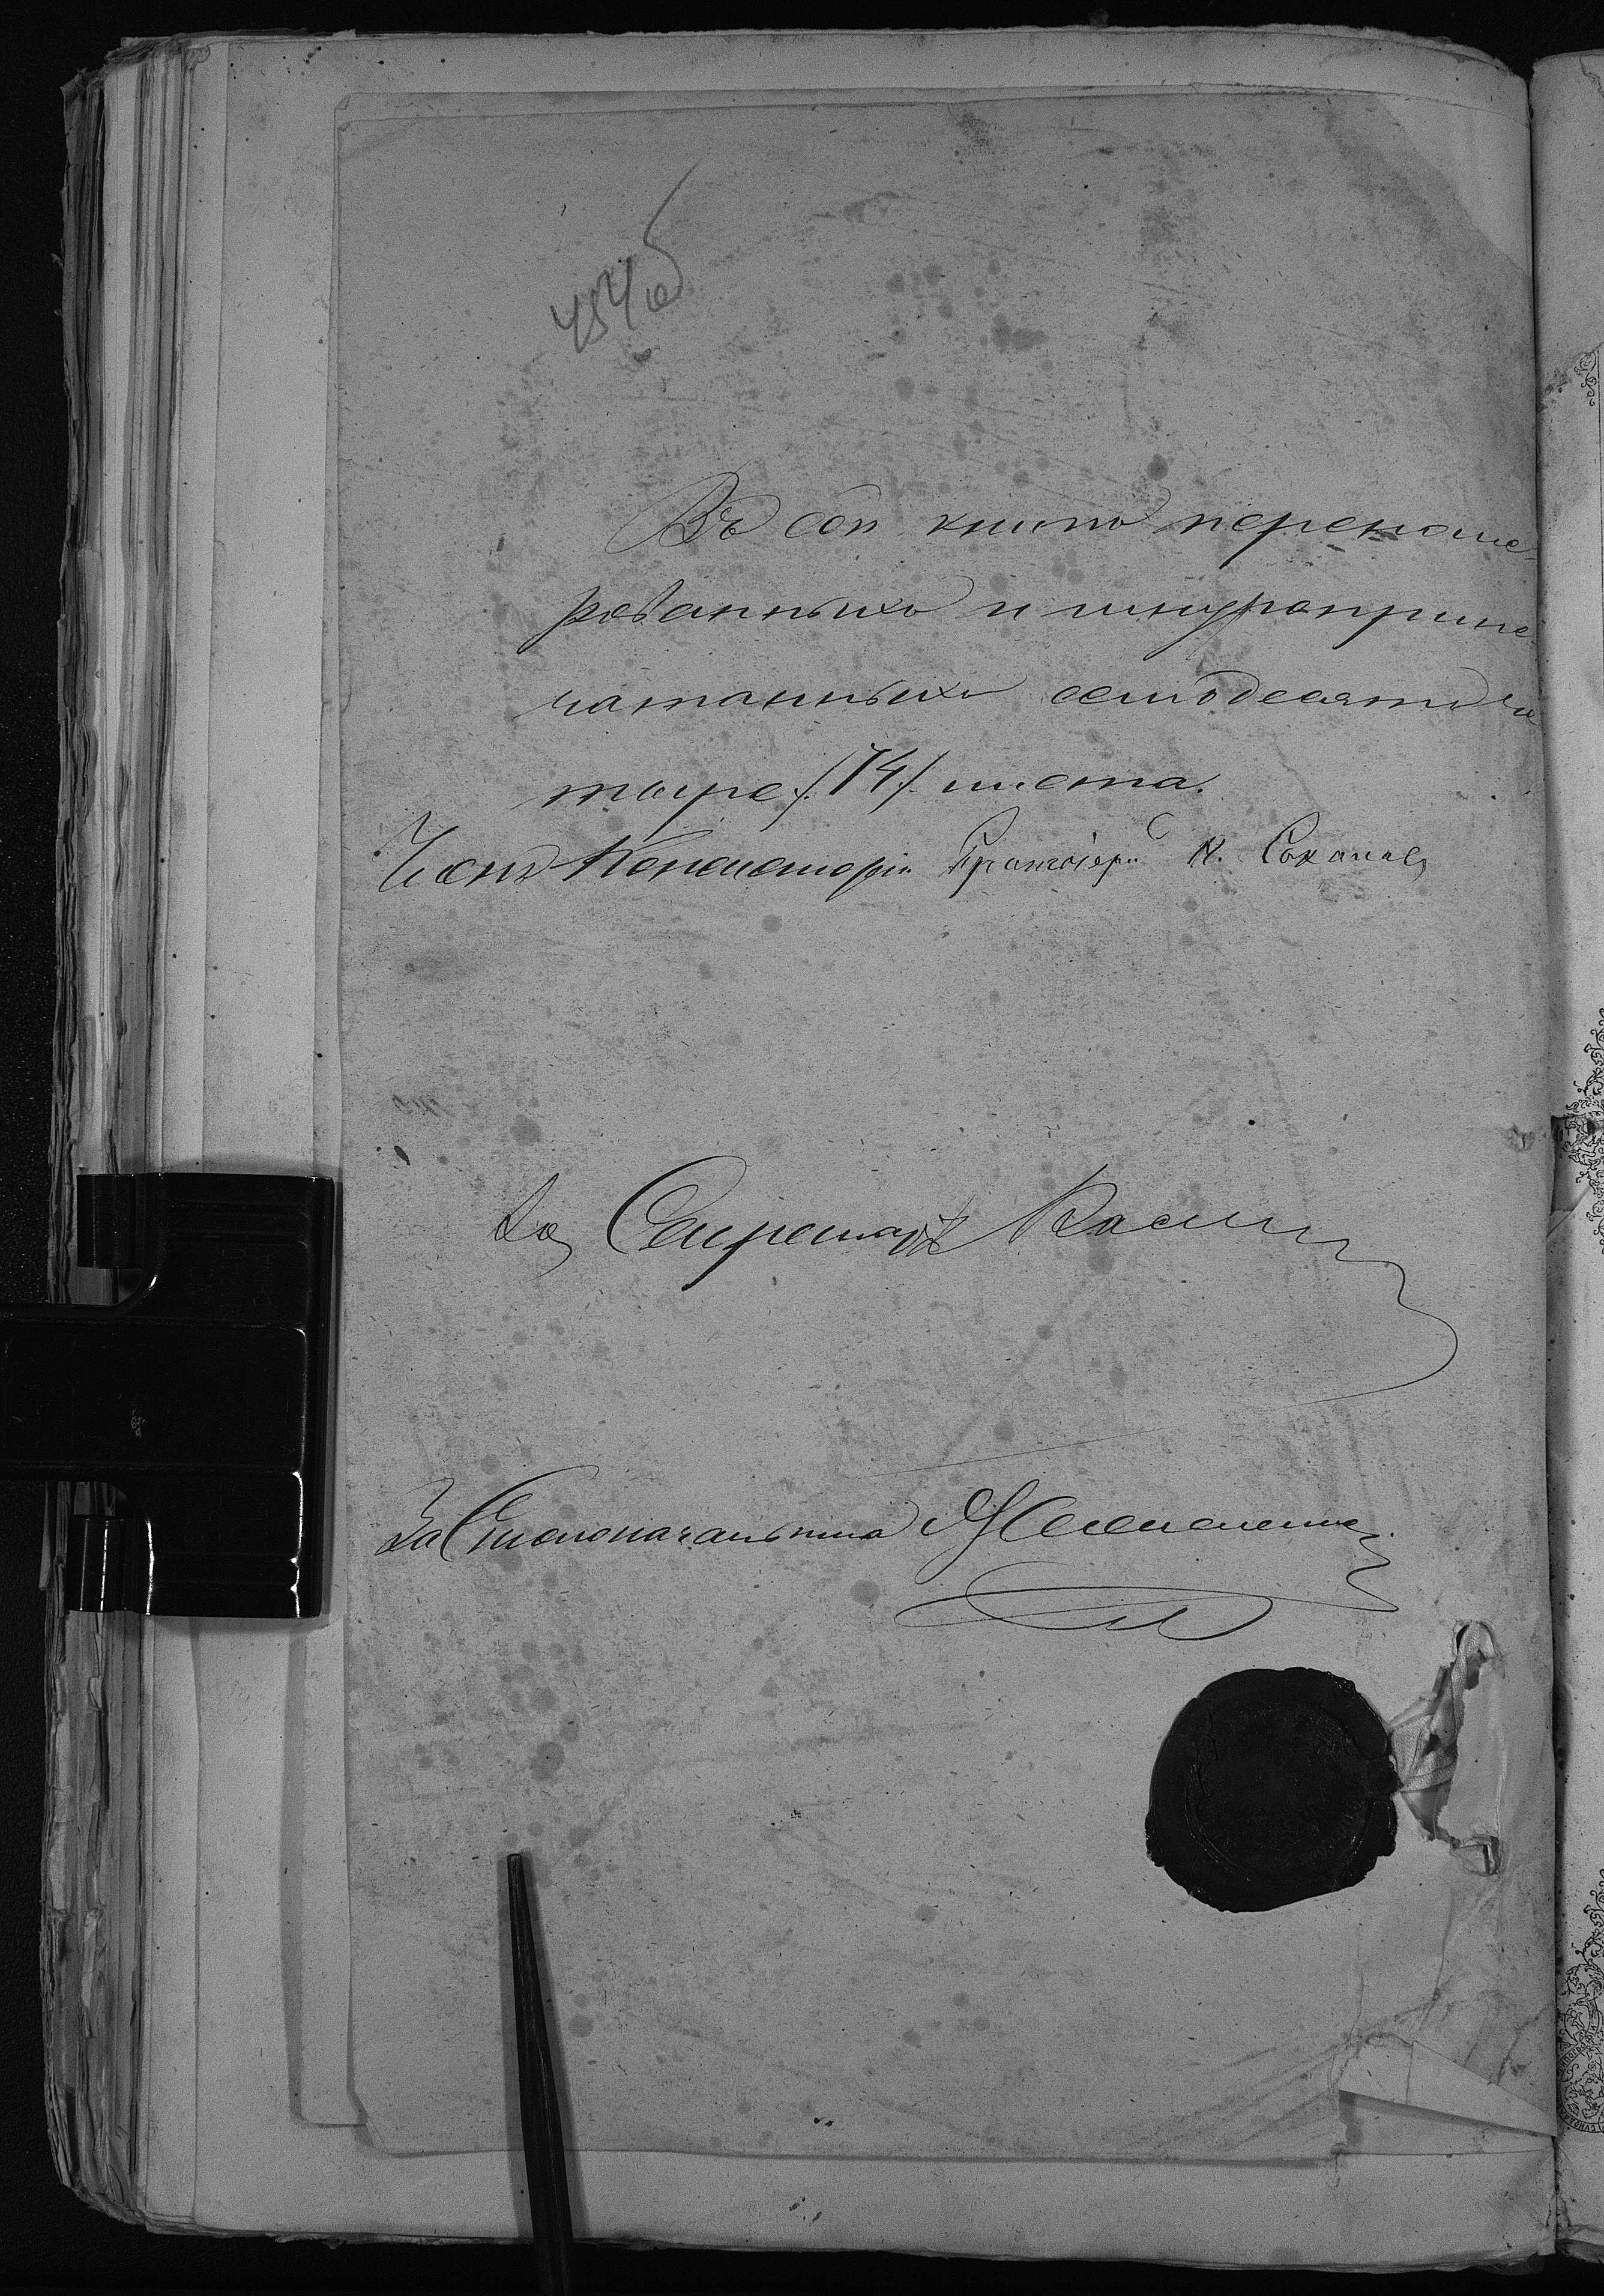 454 об
Въ сей книгѣ перенуме-
рованныхъ и шнуроприпе-
чатанныхъ семьдесятъ че
тыре /:74:/ листа.
Членъ Консисторіи Протоіерей К.
За Секретаря
За Столоначальника